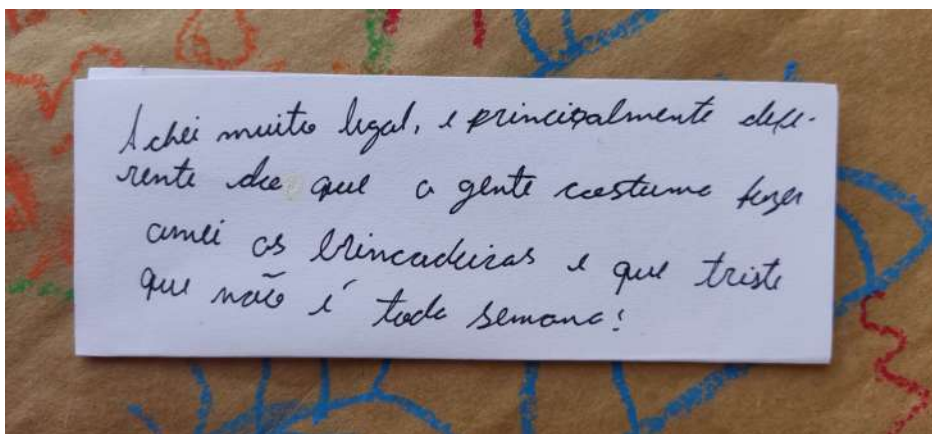 Achei muito legal, e principalmente dife-
rente do que a gente costuma fazer
amei as brincadeiras e que triste
que não é toda semana!